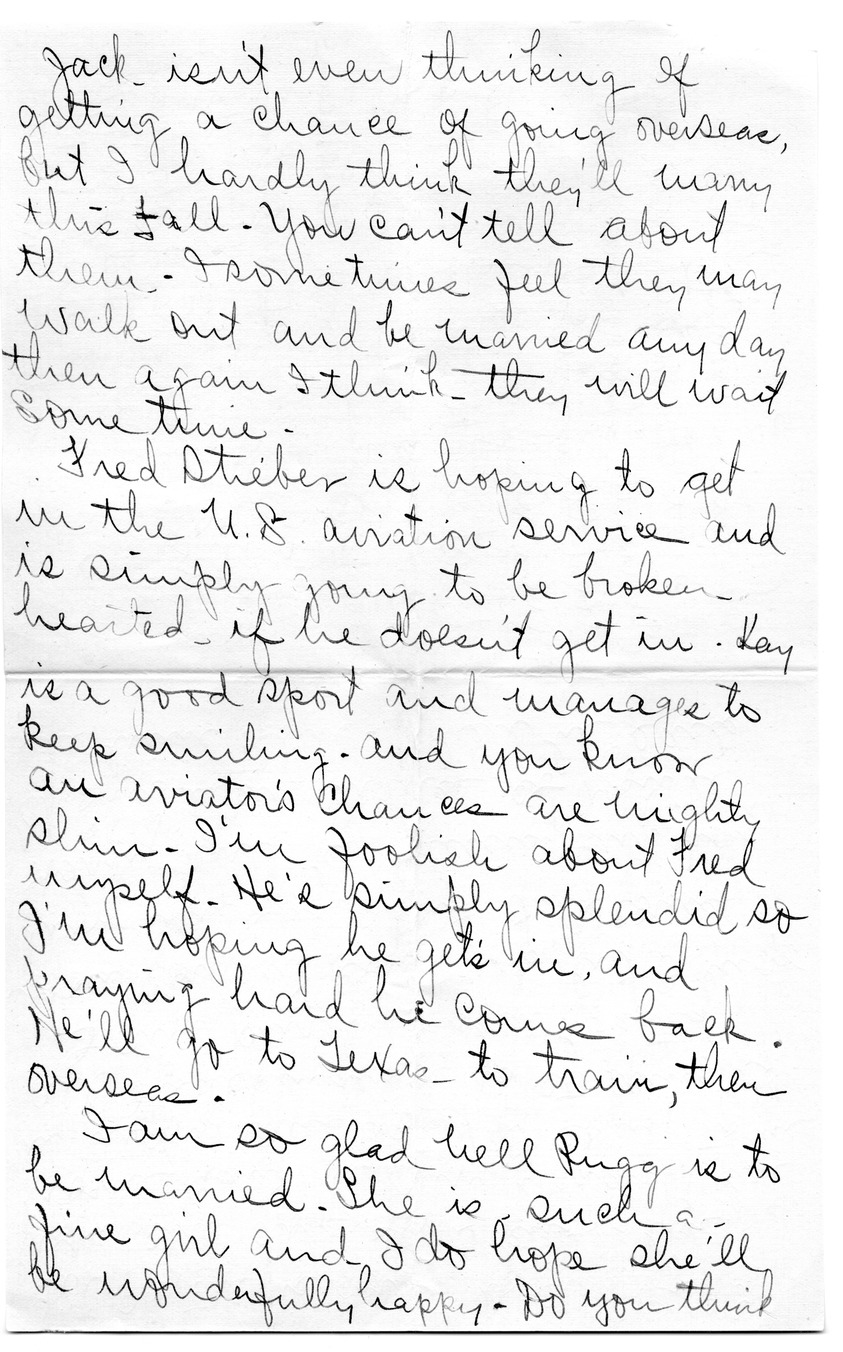 Jack isn't even thinking of
getting a chance of going overseas,
but I hardly think they'll marry
this fall - You can't tell about
them - I sometimes feel they may
walk out and be married any day
then again I think they will wait
sometime -
Fred Stieber is hoping to get
in the U.S. aviation service and
is simply going to be broken
hearted if he doesn't get in. Kay
is a good sport and manages to
keep smiling - and you know
an aviator's chances are mighty
slim - I'm foolish about Fred
myself - He's simply splendid so
I'm hoping he gets in, and
praying hard he comes back.
He'll go to Texas to train, then
overseas.
I am so glad Nell Rugg is to
be married - She is such a
fine girl and I do hope she'll
be wonderfully happy - Do you think